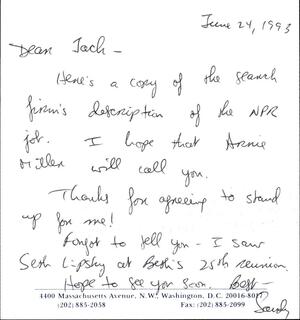 June 24, 1993
Dear Jack -
Here's a copy of the search
firm's description of the NPR
job. I hope that Arnie
Miller will call you.
Thanks for agreeing to stand
up for me!
Forgot to tell you - I saw
Seth Lipsky at Beth's 25th reunion.
Hope to see you soon. Best -
Sandy
4400 Massachusetts Avenue, N.W., Washington, D.C. 20016-8017
(202) 885-2058 (202) 885-2099